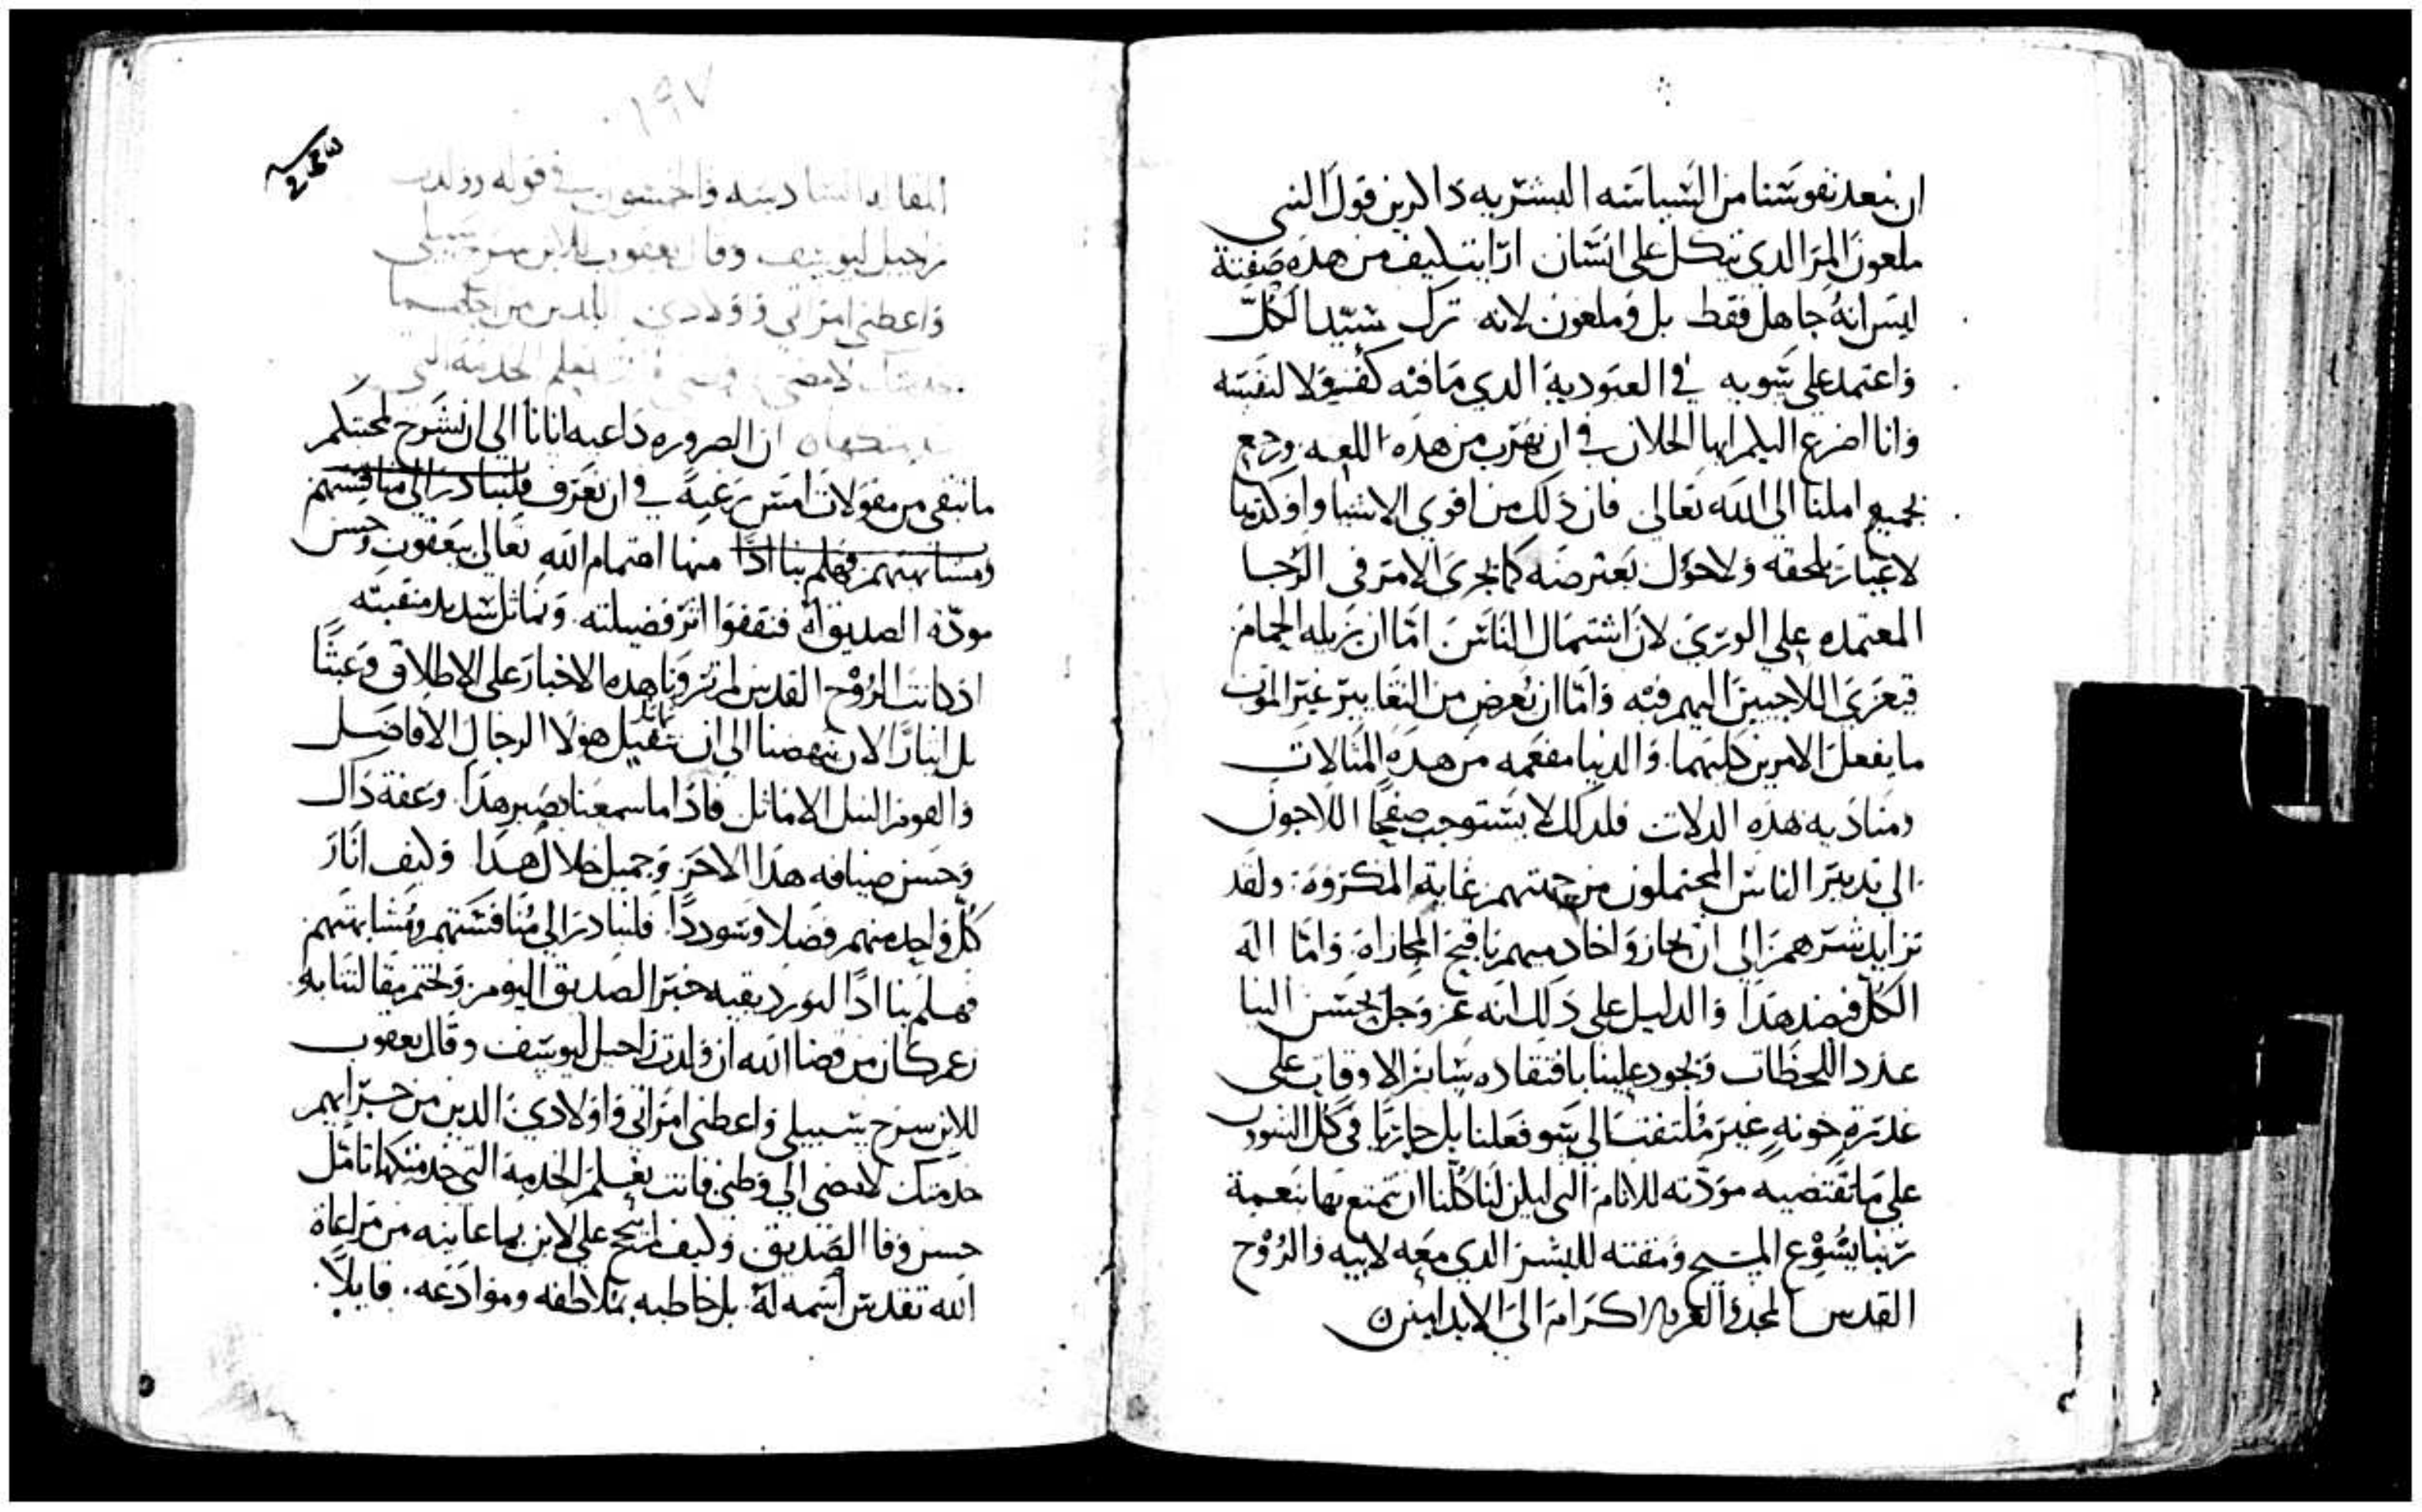 ان نبعد نفوسنا من السياسه البشريه داكرين قول النبي
ملعون المر الذي يتكل على انسان ارايت كيف من هذه صفته
ليس انه جاهل فقط بل وملعون لانه ترك سيد الكل
واعتمد على شويه في العبودية الذي ما فيه كفو ولا لنفسه
وانا اضرع اليكم ايها الخلان في ان نهرب من هذه اللعنه ونرجع
بجميع املنا الى الله تعالى فان ذلك من اقوى الاشيا واوكدها
لا غبار يلحقه ولا حول يعترضه كما يجرى الامر فى الرجا
المعتمده على الورى لان اشتمال الناس اما ان يزيله الحمام
فيعزى اللاجيين اليهم فيه واما ان يعرض من التغابير غير الموت
ما يفعل الامرين كليهما والدنيا مفعمه من هذه المثالات
ومناديه هذه الدلات فلذلك لا يستوجب صفحا اللاجون
الى تدبير الناس المحتملون من جهتهم غاية المكروه ولقد
تزايد شرهم الى ان يجازوا خادميهم باقبح المجازاة واما اله
الكل فضد هذا والدليل على ذلك انه عز وجل يحسن الينا
عدد اللحظات ويجود علينا بافتقاده ساير الاوقات على
غدرة خونه غير ملتفت الى سو فعلنا بل جازيا في كل الشوون
على ما تقتضيه مودته للانام التي ليكن لنا كلنا ان نتمتع بها بنعمة
ربنا يسوع المسيح ومقته للبشر الذي معه لابيه والروح
القدس المجد والعز والاكرام الى الابد امين
١٩٧
المقاله السادسه والخمسون في قوله وولدت
راحيل ليوسف وقال يعقوب للابن سرح سبيلى
واعطني امراتي واولادي الذين من اجلهما
خدمتك لامضى تعلم الخدمه التى
خدمتكها ان الضروره داعيه ايانا الى ان نشرح لمحبتكم
ما تبقى من مقولات امس رغبة في ان نعرف فلنبادر الى منافستهم
ومشابهتهم فهلم بنا اذا منها اهتمام الله تعالى بيعقوب وحسن
مودة الصديق له فنقفوا اثر فضيلته ونماثل شديد منقبته
اذ كانت الروح القدس لم تزوينا هذه الاخبار على الاطلاق وعبثا
بل ايثارا لان تنهضنا الى ان نماثل نتقيل هولا الرجال الافاضل
والقوم النبل الاماثل فاذا ما سمعنا بصبر هذا وعفة ذاك
وحسن ضيافه هذا الاخر وجميل خلال هذا وكيف انار
كل واحد منهم فضلا وسوددا فلنبادر الى منافستهم ومشابهتهم
فهلم بنا اذا لنورد بقيه خبر الصديق اليوم ونختم مقالتنا به
زعم كان من قضا الله ان ولدت راحيل ليوسف وقال يعقوب
للابن سرح سبيلى واعطني امراتي واولادي الذين من جرايهم
خدمتك لامضى الى وطني فانت تعلم الخدمة التي خدمتكها تامل
حسن وفا الصديق وكيف لم يتبجح على لابن بما عاينه من مراعاة
الله تقدس اسمه له بل خاطبه بملاطفه وموادعه قايلا